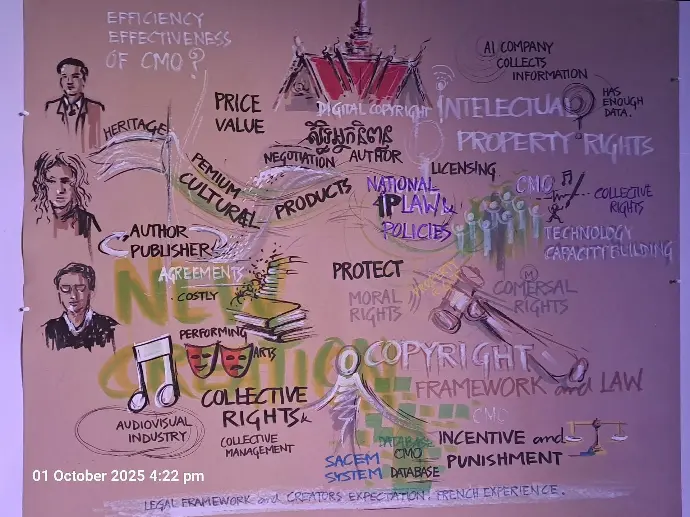 EFFICIENCY
EFFECTIVENESS
OF CMO?
AI COMPANY
COLLECTS
INFORMATION
HAS
ENOUGH
DATA.
PRICE
VALUE
DIGITAL COPYRIGHT
INTELECTUAL
PROPERTY RIGHTS
HERITAGE
សិទ្ធិអ្នកនិពន្ធ
NEGOTIATION
AUTHOR
LICENSING
PEMIUM
CULTURAL
PRODUCTS
NATIONAL
IP LAW &
POLICIES
CMO
COLLECTIVE
RIGHTS
TECHNOLOGY
CAPACITY BUILDING
AUTHOR
PUBLISHER
AGREEMENTS
COSTLY
NEW
CREATION
PROTECT
MORAL
RIGHTS
COMERSAL
RIGHTS
PERFORMING
ARTS
COPYRIGHT
FRAMEWORK and LAW
COLLECTIVE
RIGHTS &
COLLECTIVE
MANAGEMENT
AUDIOVISUAL
INDUSTRY
CMO
DATABASE
CMO
DATABASE
SACEM
SYSTEM
INCENTIVE and
PUNISHMENT
01 October 2025 4:22 pm
LEGAL FRAMEWORK and CREATORS EXPECTATION. FRENCH EXPERIENCE.